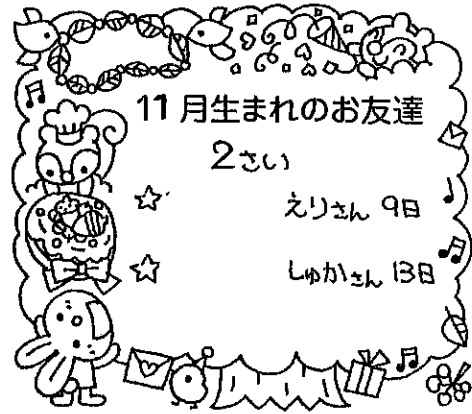 11月生まれのお友達
2さい
えりさん 9日
しゅかさん 13日